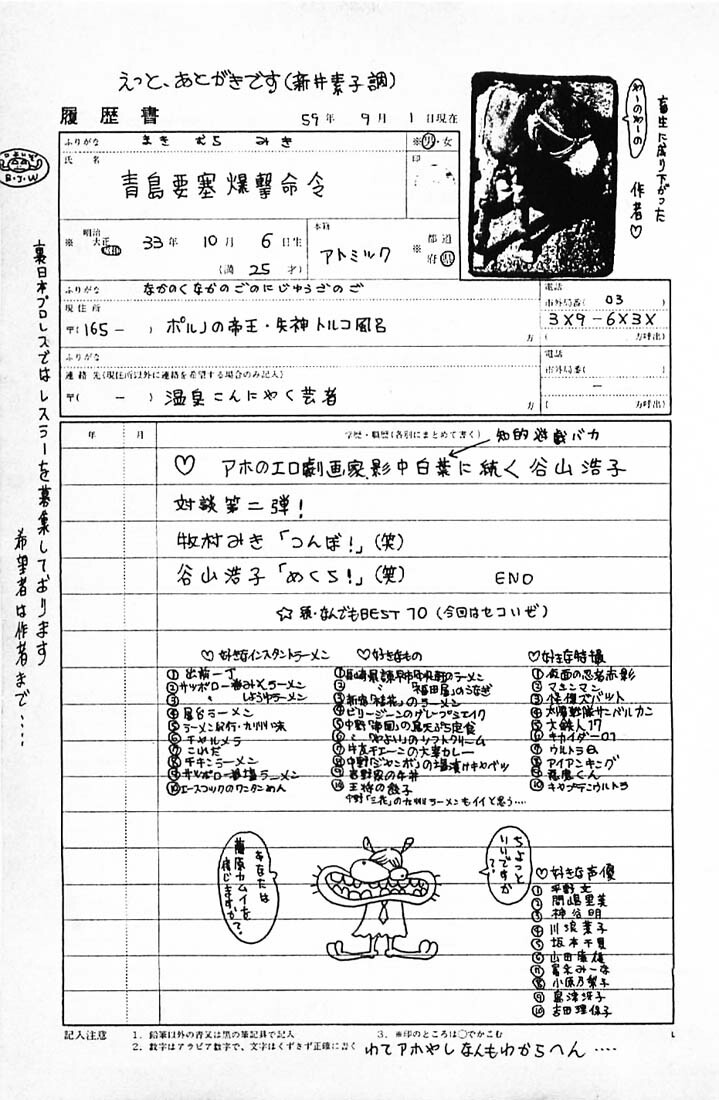 えっと、あとがきです(新井素子調)
履歴書
59年 9月 1日現在
ふりがな まきむら みき
※男・女
氏名
印
青島要塞爆撃命令
※ 明治 大正 昭和 33年 10月 6日生
(満 25才)
本籍
アトミック
※ 都道府県
ふりがな なかのくなかのごのにじゅうごのご
現住所
〒(165- ) ポルノの帝王・失神トルコ風呂
方
電話
市外局番( 03
3X9-6X3X
方呼出)
ふりがな
連絡先(現住所以外に連絡を希望する場合のみ記入)
〒( - ) 温泉こんにゃく芸者
方
電話
市外局番(
方呼出)
年 月 学歴・職歴(各別にまとめて書く)
知的遊戯バカ
♡ アホのエロ劇画家、影中白葉に続く谷山浩子
対談第二弾!
牧村みき「つんぼ!」(笑)
谷山浩子「めくら!」(笑) END
☆続・なんでもBEST10(今回はセコいぜ)
♡好きなインスタントラーメン
①出前一丁
②サッポロ一番みそラーメン
③〃 しょうゆラーメン
④屋台ラーメン
⑤ラーメン紀行・九州味
⑥チャルメラ
⑦これだ
⑧チキンラーメン
⑨サッポロ一番塩ラーメン
⑩エースコックのワンタンめん
♡好きなもの
②〃 「福田屋」のうなぎ
③新宿「桂花」のラーメン
④ビリージーンのグレープシェイク
⑥〃「やよい」のソフトクリーム
⑦牛友チェーンの大峯カレー
⑧中野「ジャンボ」の塩漬けキャベツ
⑨吉野家の牛丼
⑩王将の餃子
中野「三花」の九州ラーメンもイイと思う‥‥
♡好きな特撮
①仮面の忍者赤影
②マシンマン
③怪傑ズバット
④太陽戦隊サンバルカン
⑤大鉄人17
⑥キカイダー01
⑦ウルトラQ
⑧アイアンキング
⑨悪魔くん
⑩キャプテンウルトラ
♡好きな声優
①平野文
②間嶋里美
③神谷明
④川浪葉子
⑤坂本千夏
⑥山田康雄
⑦冨永みーな
⑧小原乃梨子
⑨島津冴子
⑩吉田理保子
ちょっといいですか?
あなたは藤原カムイを信じますか?
記入注意 1. 鉛筆以外の青又は黒の筆記具で記入 3. ※印のところは○でかこむ
2. 数字はアラビア数字で、文字はくずさず正確に書く
わてアホやしなんもわからへん‥‥
畜生に成り下がった
わーのわーの
作者♡
B.J.W
裏日本プロレスではレスラーを募集しております
希望者は作者まで‥‥